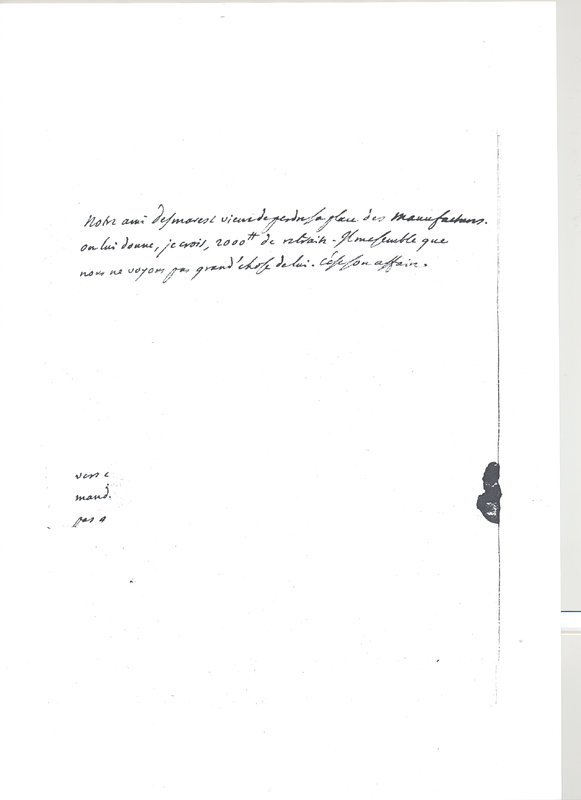 Notre ami Desmarest vient de perdre sa place des manufactures.
on lui donne, je crois, 2000 tt de retraite. Il me semble que
nous ne voyons pas grand'chose de lui. C'est son affaire.
vers
mand.
pas